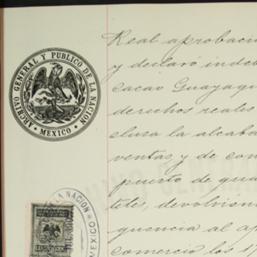 ARCHIVO GENERAL Y PUBLICO DE LA NACION
· MEXICO ·
Real aprobaci
y declaró inde
cacao Guayaqu
derechos reales
clusa la alcaba
ventas y de con
puerto de gua
tets, devolvien
quencia al ap
comercio los 1
NACION
MEXICO